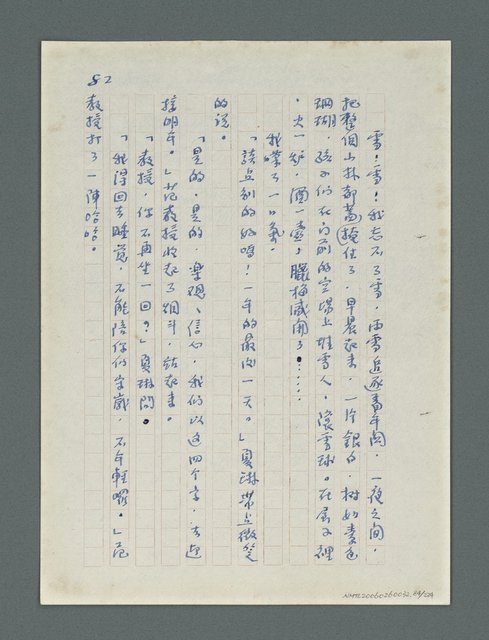 雪!雪!我忘不了雪,雨雪追逐舊年關,一夜之間,
把整個山林都蓋(掩住了,早晨起來,一片銀白,樹如麥色
珊瑚,孩子們在門前的空場上堆雪人,滾雪球。在屋子裡
,火一爐,酒一壺,臘梅盛開了……。
我嘆了一口氣。
「談点別的好嗎!一年的最後一天。」夏琳帶点微笑
的說。
「是的,是的,樂觀、信心,我們以這四个字,去迎
接明年。」范教授收起了烟斗,站起來。
「教授,你不再坐一回?」夏琳問。
「我得回去睡覺,不能陪你們守歲,不年輕囉。」范
教授打了一陣哈哈。
82
NMTL20060260032